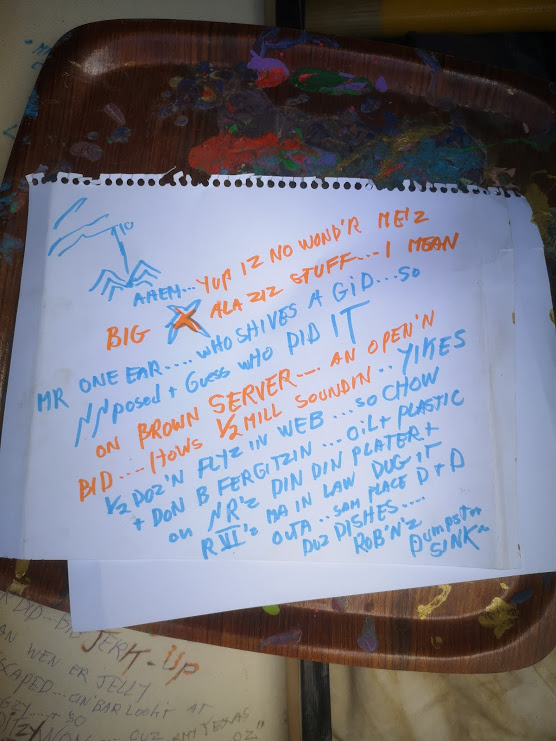 10
AHEM... YUP IZ NO WOND'R ME'Z
BIG X ALAZIZ STUFF... I MEAN
MR ONE EAR.... WHO SHIVES A GID... SO
NNposed + GUESS WHO DID IT
ON BROWN SERVER... AN OPEN'N
BID... HOWS 1/2 MILL SOUNDIN.. YIKES
1/2 DOZ'N FLYZ IN WEB... SO CHOW
+ DON B FERGITZIN... OIL + PLASTIC
ON NR'Z DIN DIN PLATER +
R VI'z MA IN LAW DUG IT
OUTA.. SAM PLACE D + D
DUZ DISHES....
ROB'N'z
DUMPSTR
SINK~
JERK-UP
AN WEN ER JELLY
SCAPED... ON'BAR LOOKIT AT
SO